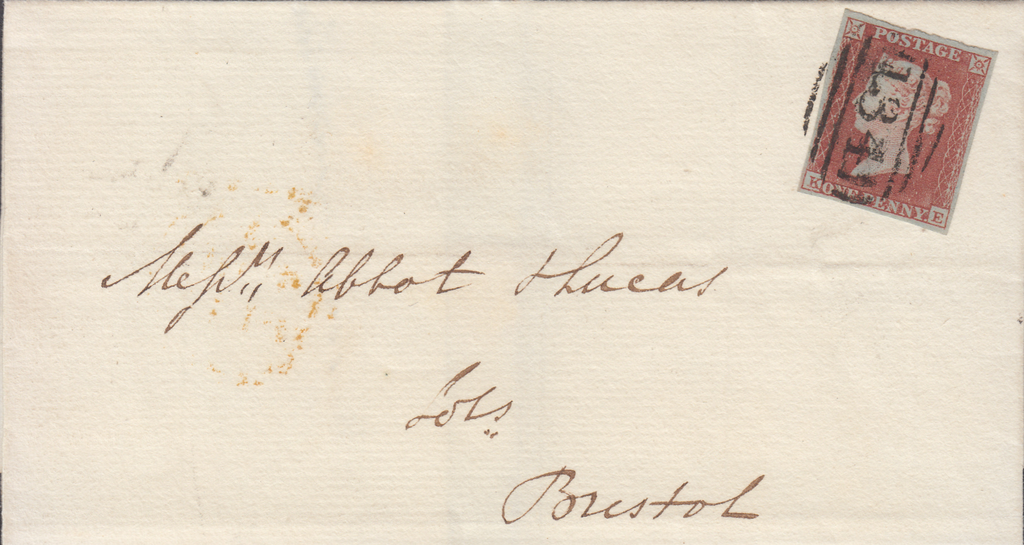 POSTAGE
134
K ONE PENNY. E
Messrs Abbot & Lucas
Sols
Bristol